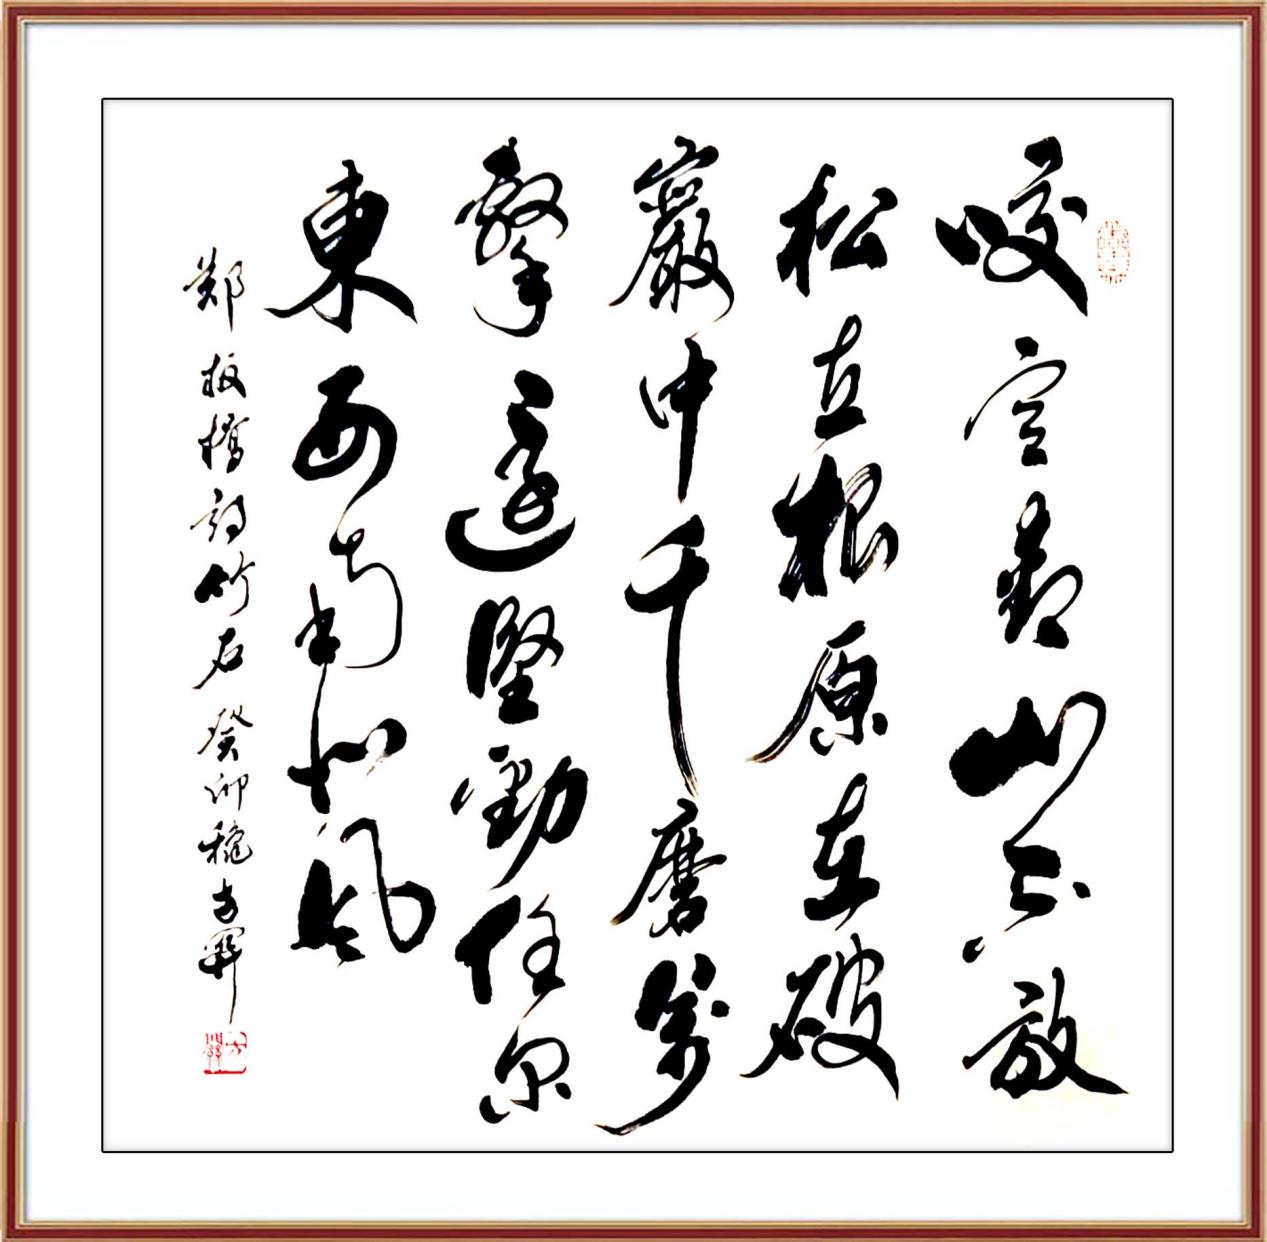 咬定青山不放
松立根原在破
巖中千磨萬
擊還堅勁任尔
東西南北風
郑板橋詩竹石癸卯穐方闢